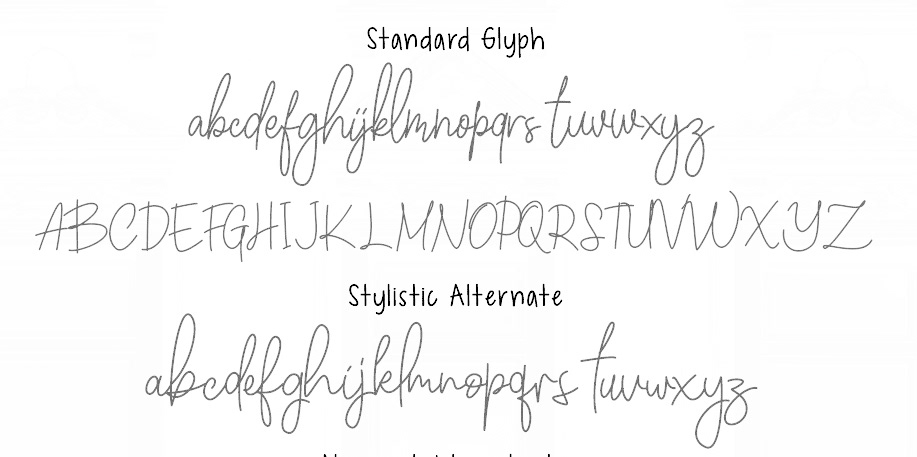 Standard Glyph
abcdefghijklmnopqrstuvwxyz
ABCDEFGHIJKLMNOPQRSTUVWXYZ
Stylistic Alternate
abcdefghijklmnopqrstuvwxyz